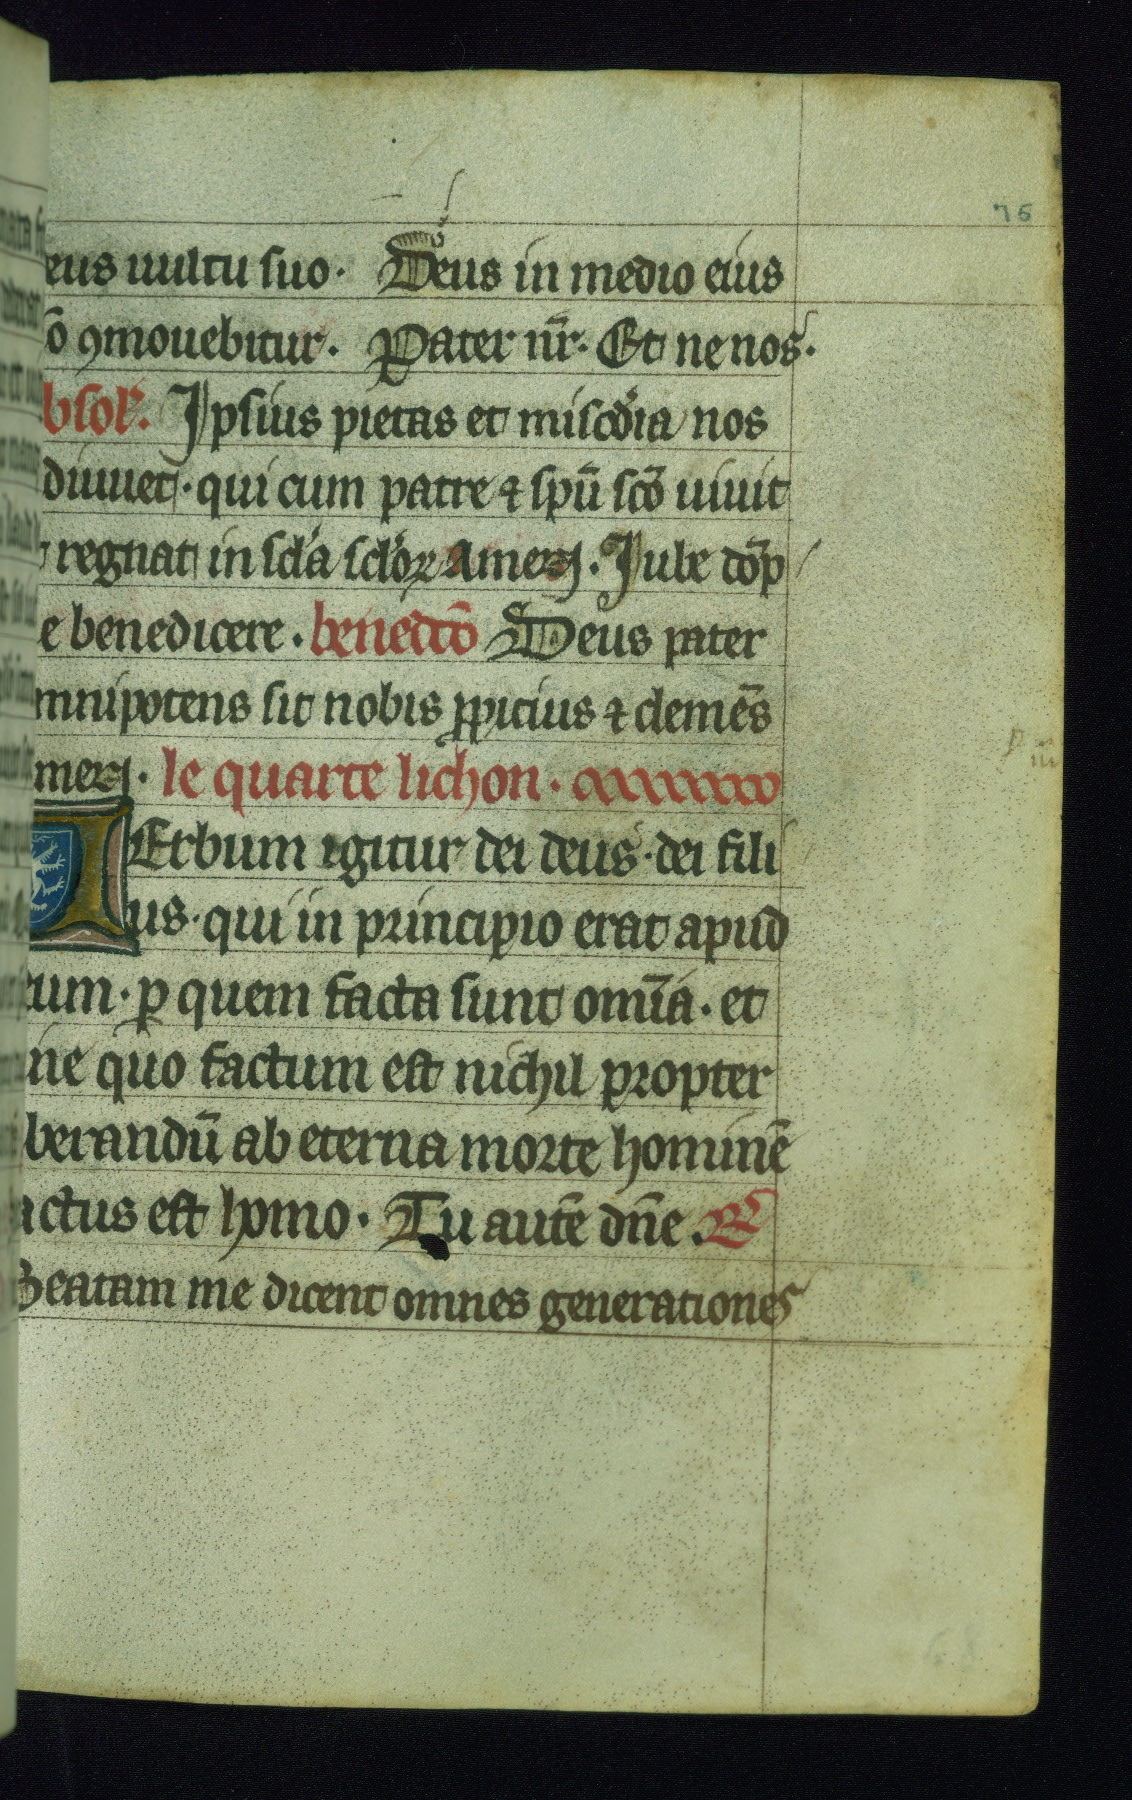 75
eus uultu suo. Deus in medio eius
õ ꝯmouebitur. Pater nr̃. Et ne nos.
bsol'. Ipsius pietas et misc̃dia nos
diuuet. qui cum patre ⁊ spũ sc̃o uiuit
regnat in sc̃la sc̃loꝝ Amen. Iube dõp
e benedicere. benedcõ Deus pater
mnipotens sit nobis ꝓpicius ⁊ clemẽs
men. le quarte lichon.
Erbum igitur dei deus. dei fili
us. qui in principio erat apud
eum. ꝑ quem facta sunt om̃ia. et
ne quo factum est nichil propter
berandũ ab eterna morte hominẽ
actus est homo. Tu autẽ dñe. ℟
Beatam me dicent omnes generationes